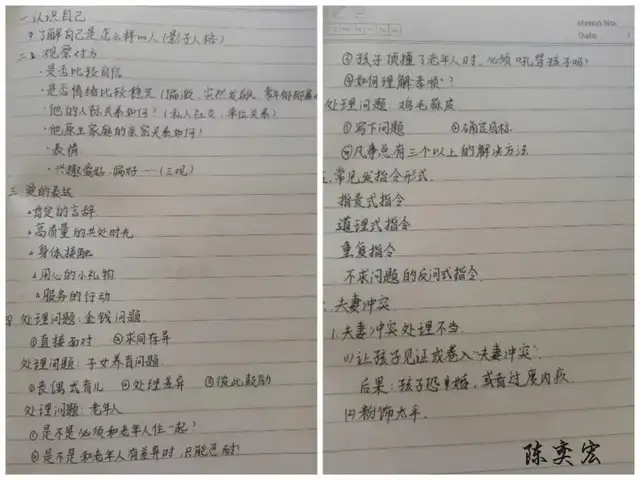 一.认识自己
了解自己是怎么样的人(影子人格)
二. 观察对方
·是否比较自信
·是否情绪比较稳定(偏激、突然发飙、常年郁郁寡
·他的人际关系如何?(私人社交、单位关系)
·他原生家庭的亲密关系如何?
·表情
·兴趣爱好、偏好……(三观)
三.爱的表达
肯定的言辞
高质量的共处时光
身体接触
用心的小礼物
服务的行动
四.处理问题:金钱问题
①直接面对 ②求同存异
处理问题:子女养育问题
①丧偶式育儿 ②处理差异 ③彼此鼓励
处理问题:老年人
①是不是必须和老年人住一起?
②是不是和老年人有差异时,只能忍耐?
③孩子顶撞了老年人时,必须"吼骂孩子吗?
④如何理解"孝顺"?
处理问题:鸡毛蒜皮
①写下问题 ②确定目标
③凡事总有三个以上的解决方法
常见发指令形式.
指责式指令
道理式指令
重复指令
不求问题的反问式指令
夫妻冲突
1.夫妻冲突处理不当.
(1)让孩子见证或卷入"夫妻冲突".
后果:孩子恐婚,或者过度内疚.
(2)粉饰太平.
陈奕宏